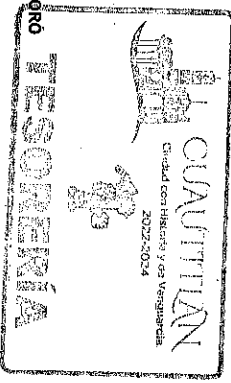 CUAUTITLAN
Ciudad con Historia y de Vanguardia
2022-2024
TESORERÍA
ORÓ